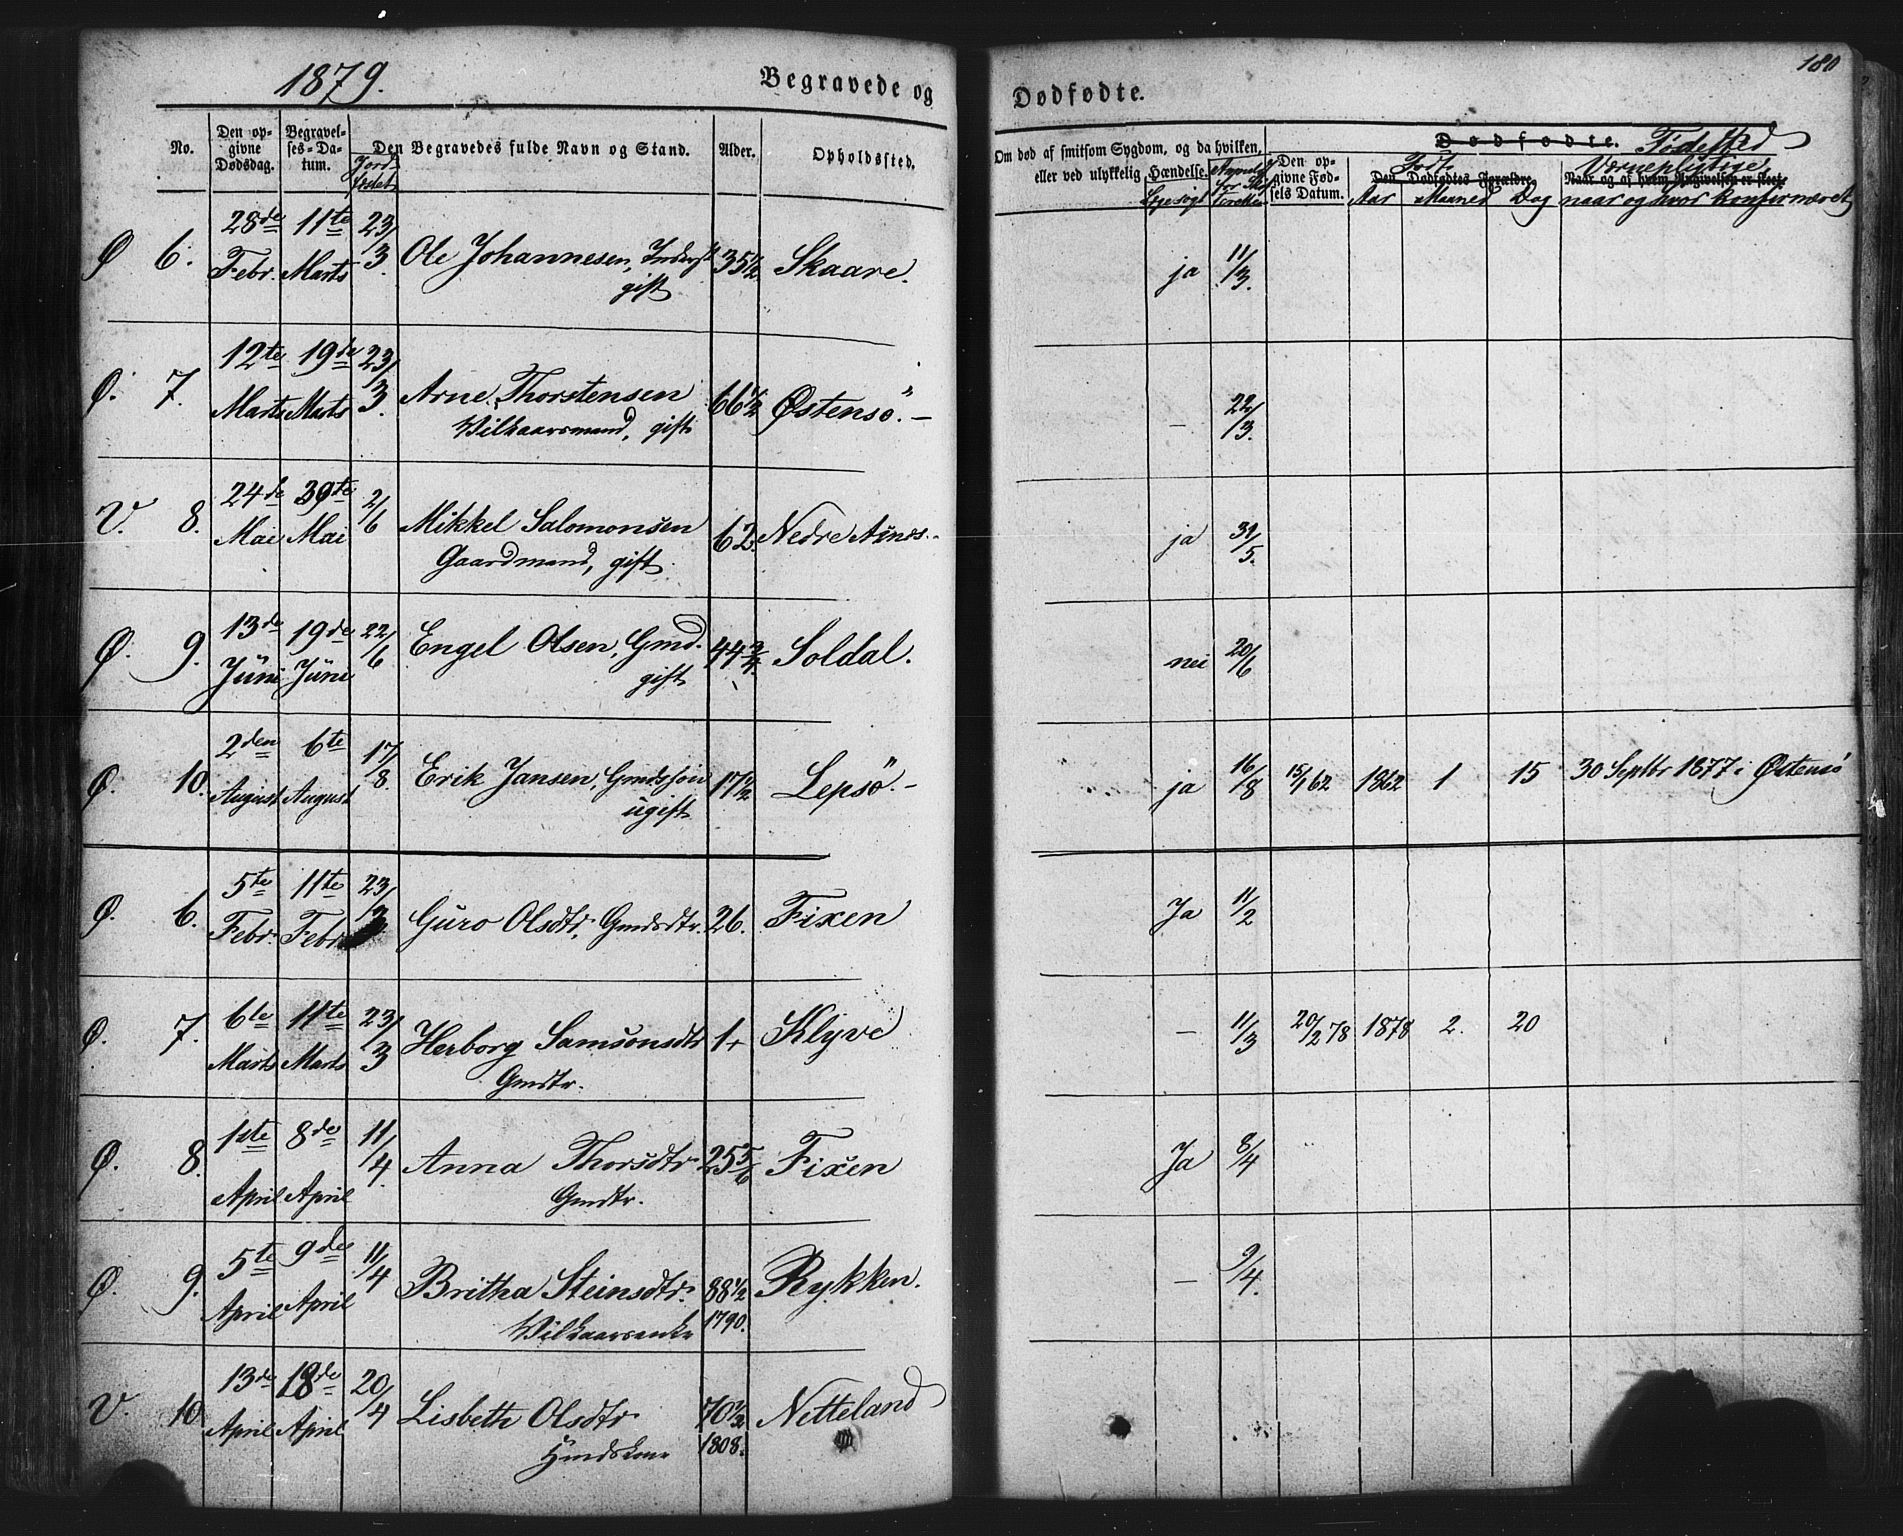 1879.
Begravede og
Dødfødte.
180
No.
Den op-
givne
Dødsdag.
Begravel-
ses-Da-
tum.
Den Begravedes fulde Navn og Stand.
Jord-
festet
Alder.
Opholdssted.
Om død af smitsom Sygdom, og da hvilken,
eller ved ulykkelig Hændelse.
Lægesøgt
Den op-
givne Fød-
sels Datum.
Dødfødte. Fødested
Født
Den Dødfødtes Forældre.
Aar Maaned Dag
Værnepligtige
Naar og af hvem Angivelsen er skeet.
naar og hvor konfirmeret
Ø 6. 28de Febr. 11te Marts 23/3 Ole Johannesen, Inderst 35 1/2 Skaare. ja 11/3.
gift
Ø. 7. 12te Marts 19de Marts 23/3. Arne Thorstensen 66 1/2 Østensö. – – 22/3.
Vilkaarsmand, gift
V. 8. 24de Mai 30te Mai 2/6 Mikkel Salomonsen 62. Nedre Aǔnes. ja 31/5.
Gaardmand, gift
Ø. 9. 13de Jǔni 19de Jǔni 22/6 Engel Olsen, Gmd. 44 3/4. Soldal. nei 20/6
gift
Ø. 10. 2den August 6te August 17/8. Erik Jansen, Gmdssøn 17 1/2 Lepsö. – ja 16/8 15/1 62 1862 1 15 30 Septbr 1877 i Østensö
ugift
Ø. 6. 5te Febr. 11te Febr. 23/3 Guro Olsdtr, Gmdsdtr. 26. Fixen Ja 11/2
Ø. 7. 6te Marts 11te Marts 23/3 Herborg Samsonsdtr 1. Klyve – 11/3 20/2 78 1878 2. 20
Gmdtr.
Ø. 8. 1ste April 8de April 11/4. Anna Thorsdtr 25 5/6 Fixen Ja 8/4
Gmdtr.
Ø. 9. 5te April 9de April 11/4 Britha Steinsdtr. 88 1/2 Rykken. – 9/4.
Vilkaarsenke 1790.
V. 10 13de April 18de April 20/4 Lisbeth Olsdtr 70 1/2 Netteland
Hmdskone 1808.